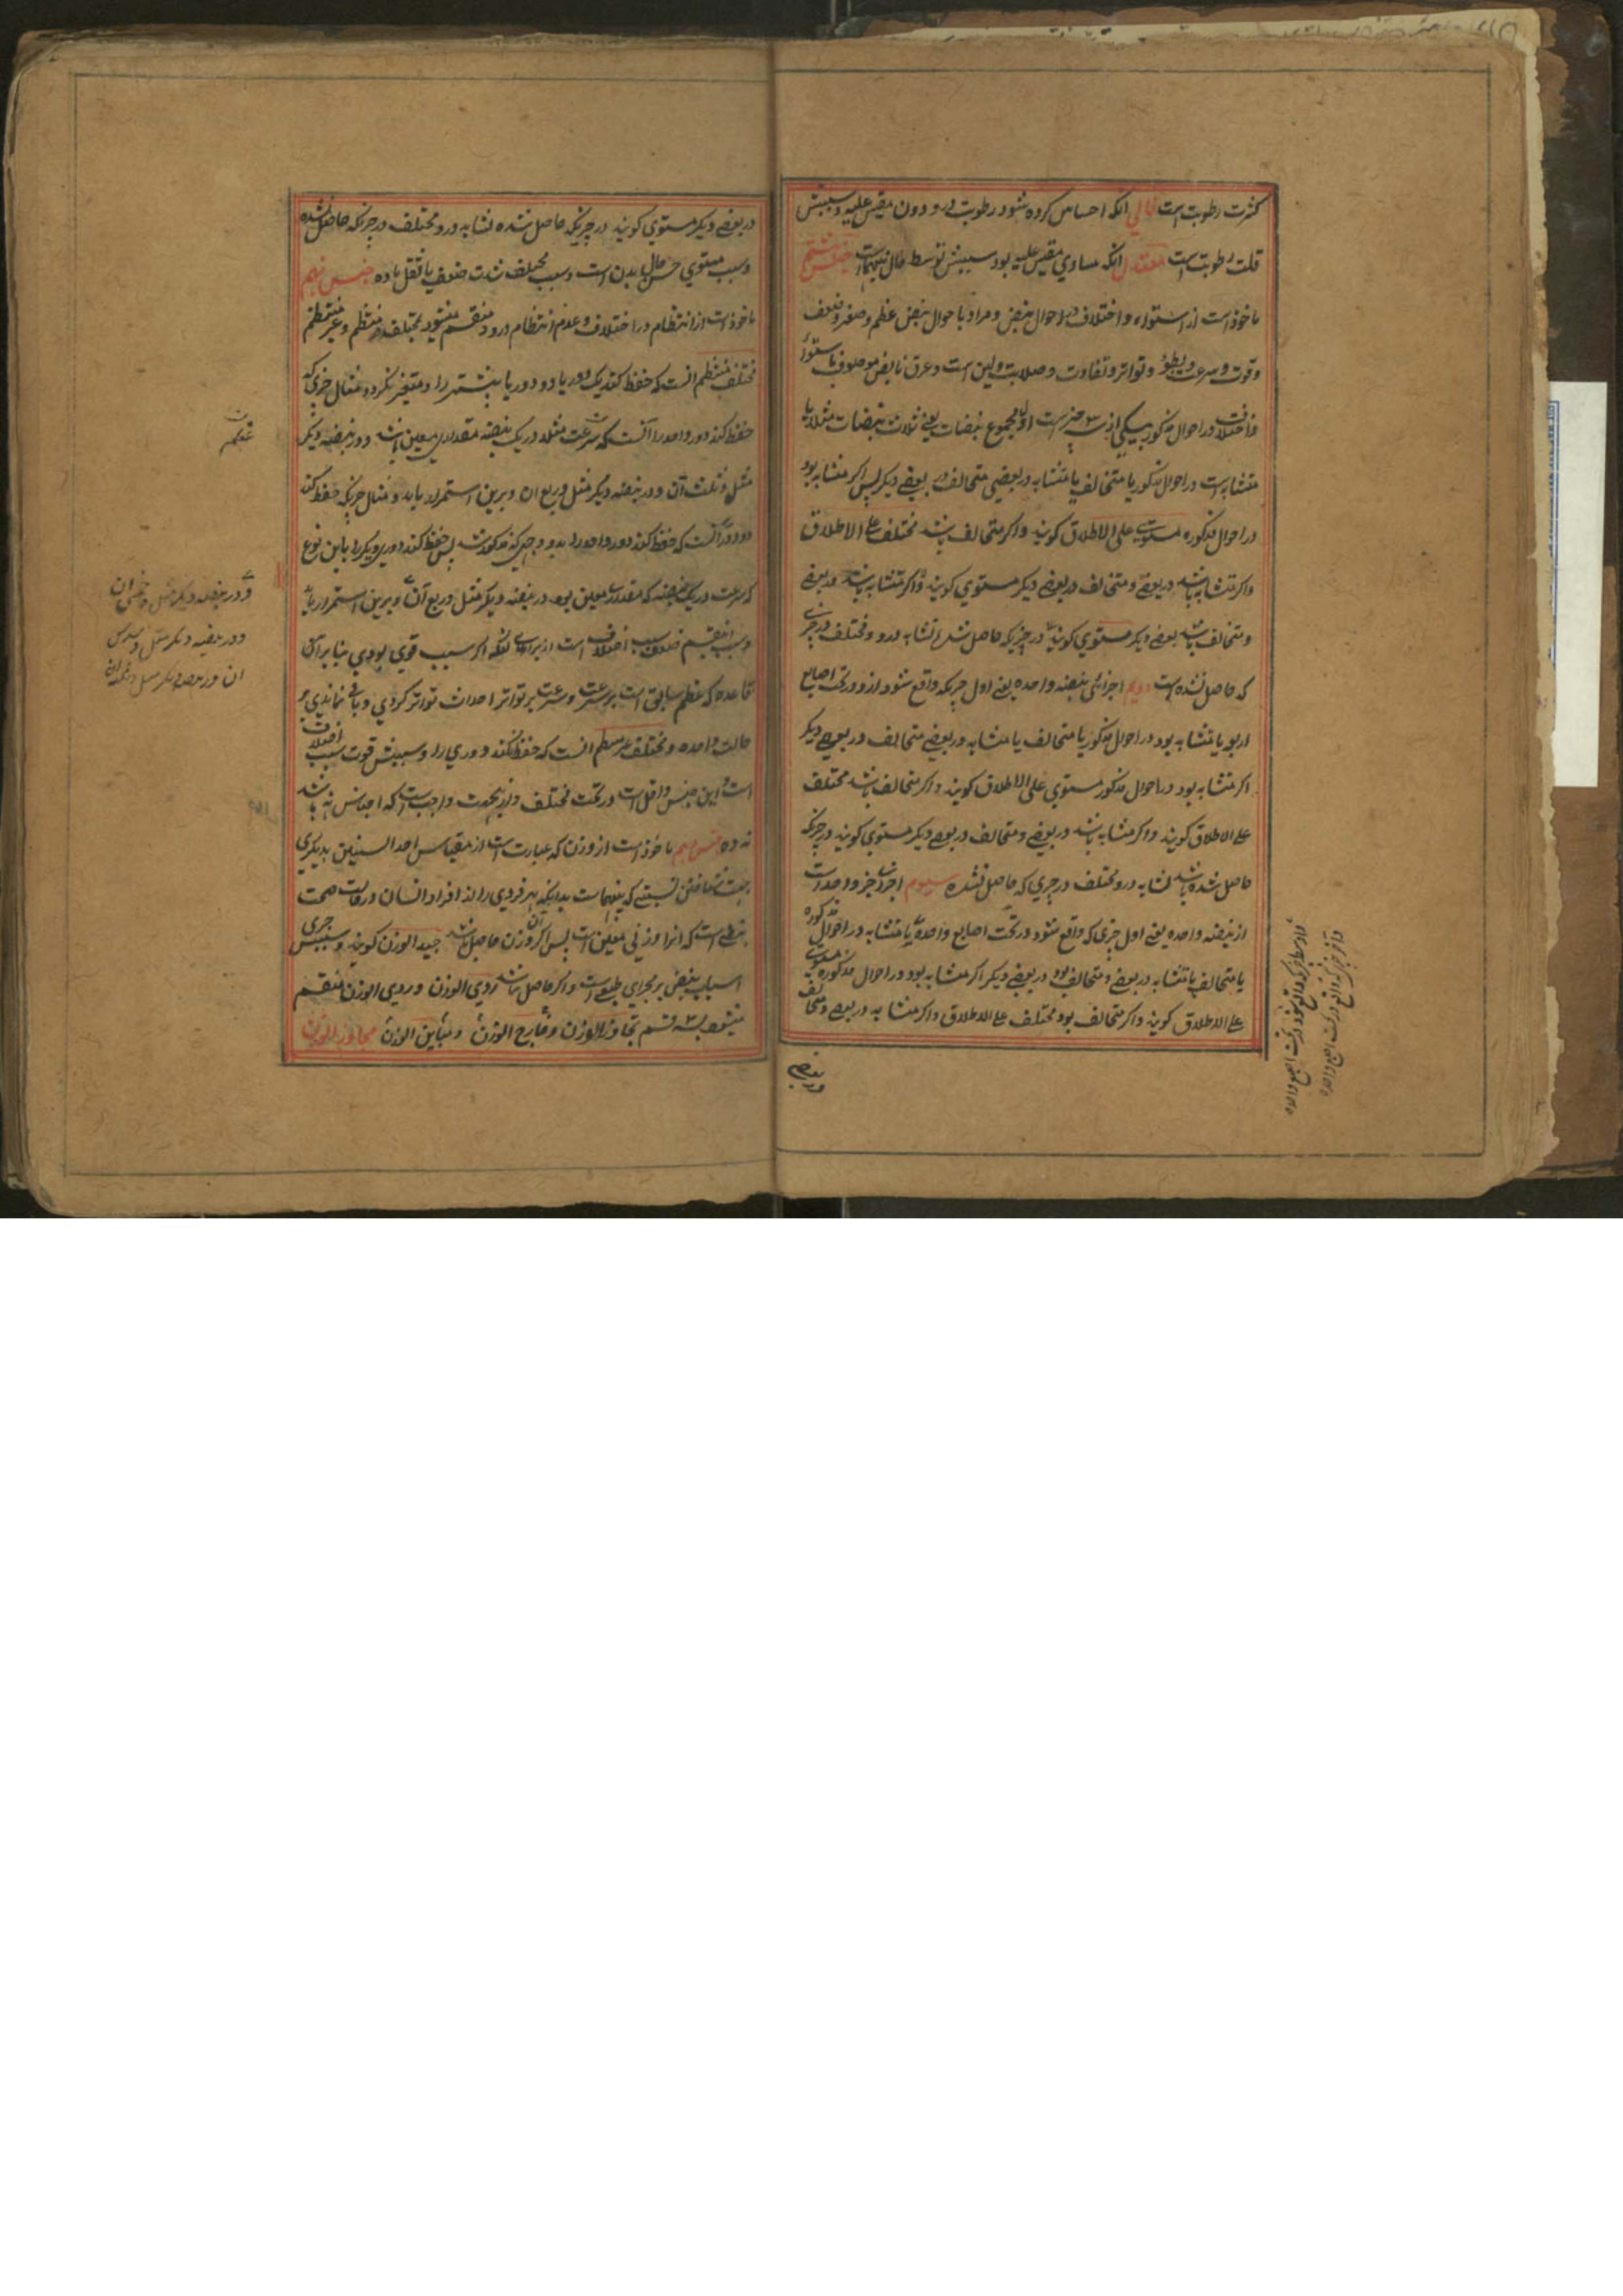 کثرت رطوبت است خالي انکه احساس کرده شود رطوبت درو دون مقیس علیه و سببش
قلت رطوبت است معتدل انکه مساوي مقیس علیه بود سببش توسط حال بینهما است جنس هشتم
ماخوذ است از استواء و اختلاف در احوال نبض و مراد باحوال نبض عظم و صغر و ضعف
وقوت و سرعت و بطوء و تواتر و تفاوت و صلابت و لین است و عرق نابض موصوف باستواء
واختلاف در احوال مذکور بیکي از سه چیز است اول مجموع نبضات یعنے ثلاث نبضات مثلا یا
متشابه است در احوال مذکور یا متخالف یا متشابه در بعضي متخالف در بعضے دیکر پس اکر متشابه بود
در احوال مذکوره مستوے علی الاطلاق کویند واکر متخالف باشد مختلف علے الاطلاق
واکر متشابه باشد در بعضے و متخالف در بعضے دیکر مستوي کویند واکر متشابه باشد در بعضے
ومتخالف باشد بعضے دیکر مستوي کویند در چیزیکه حاصل شد تشابه درو و مختلف در چیزے
که حاصل نشده است دویم اجزائے نبضه واحده یعنے اول چیزیکه واقع شود ازو در تحت اصابع
اربع یا متشابه بود در احوال مذکور یا متخالف یا متشابه در بعضے متخالف در بعضے دیکر
اکر متشابه بود در احوال مذکور مستوي علی الاطلاق کویند واکر متخالف باشد مختلف
علے الاطلاق کویند واکر متشابه باشد در بعضے و متخالف در بعضے دیکر مستوي کویند در چیزیکه
حاصل شده باشد تشابه درو مختلف در چیزي که حاصل نشده سیوم اجزاے جزو واحد است
از نبضه واحده یعنے اول چیزي که واقع شود در تحت اصابع واحده یا متشابه در احوال مذکوره
یا متخالف یا متشابه در بعضے و متخالف بود در بعضے دیکر اکر متشابه بود در احوال مذکوره مستوے
علے الاطلاق کویند واکر متخالف بود مختلف علے الاطلاق واکر متشابه در بعضے و متخالف
در بعضے
در بعضے دیکر مستوي کویند در چیزیکه حاصل شده تشابه درو و مختلف در چیزیکه حاصل نشده
وسبب مستوي حسن حال بدن است وسبب مختلف شدت ضعف یا ثقل ماده جنس نهم
ماخوذ است از انتظام در اختلاف و عدم انتظام درو و منقسم میشود بمختلف منتظم و غیر منتظم
مختلف منتظم انست که حفظ کند یک دور یا دو دور یا بیشتر را و متغیر نکردد مثال چیزي که
حفظ کند دور واحد را آنست که سرعت مثلا در یک نبضه مقدارے معین باشد و در نبضه دیکر
مثل و ثلث آن و در نبضه دیکر مثل و ربع ان و برین استمرار یابد و مثال چیزیکه حفظ کند
دو دور آنست که حفظ کند دور واحد را بدو وجهے که مذکور شد پس حفظ کند دور دیکر را باین نوع
که سرعت در یک نبضه که مقدارے معین بود در نبضه دیکر مثل و ربع آن و برین استمرار یابد
قاعده که عظم سابق است بر سرعت و سرعت بر تواتر احداث تواتر کردي و باقي نماندي بر
حالت واحده و مختلف غیر منتظم انست که حفظ نکند دوري را و سببش قوت سبب اختلاف
است و این جنس داخل است در تحت مختلف و ازینجهت واجب است که اجناس نه باشد
نه ده جنس دهم ماخوذ است از وزن که عبارت است از مقیاس احد السنین بدیکري
اسباب نبض بر مجراي طبیعے است واکر حاصل نباشد ردي الوزن و ردي الوزن منقسم
میشود بسه قسم مجاوز الوزن و خارج الوزن و مباین الوزن مجاوز الوزن
و در نبضه دیکر مثل و خمس ان
و در نبضه دیکر مثل و سدس